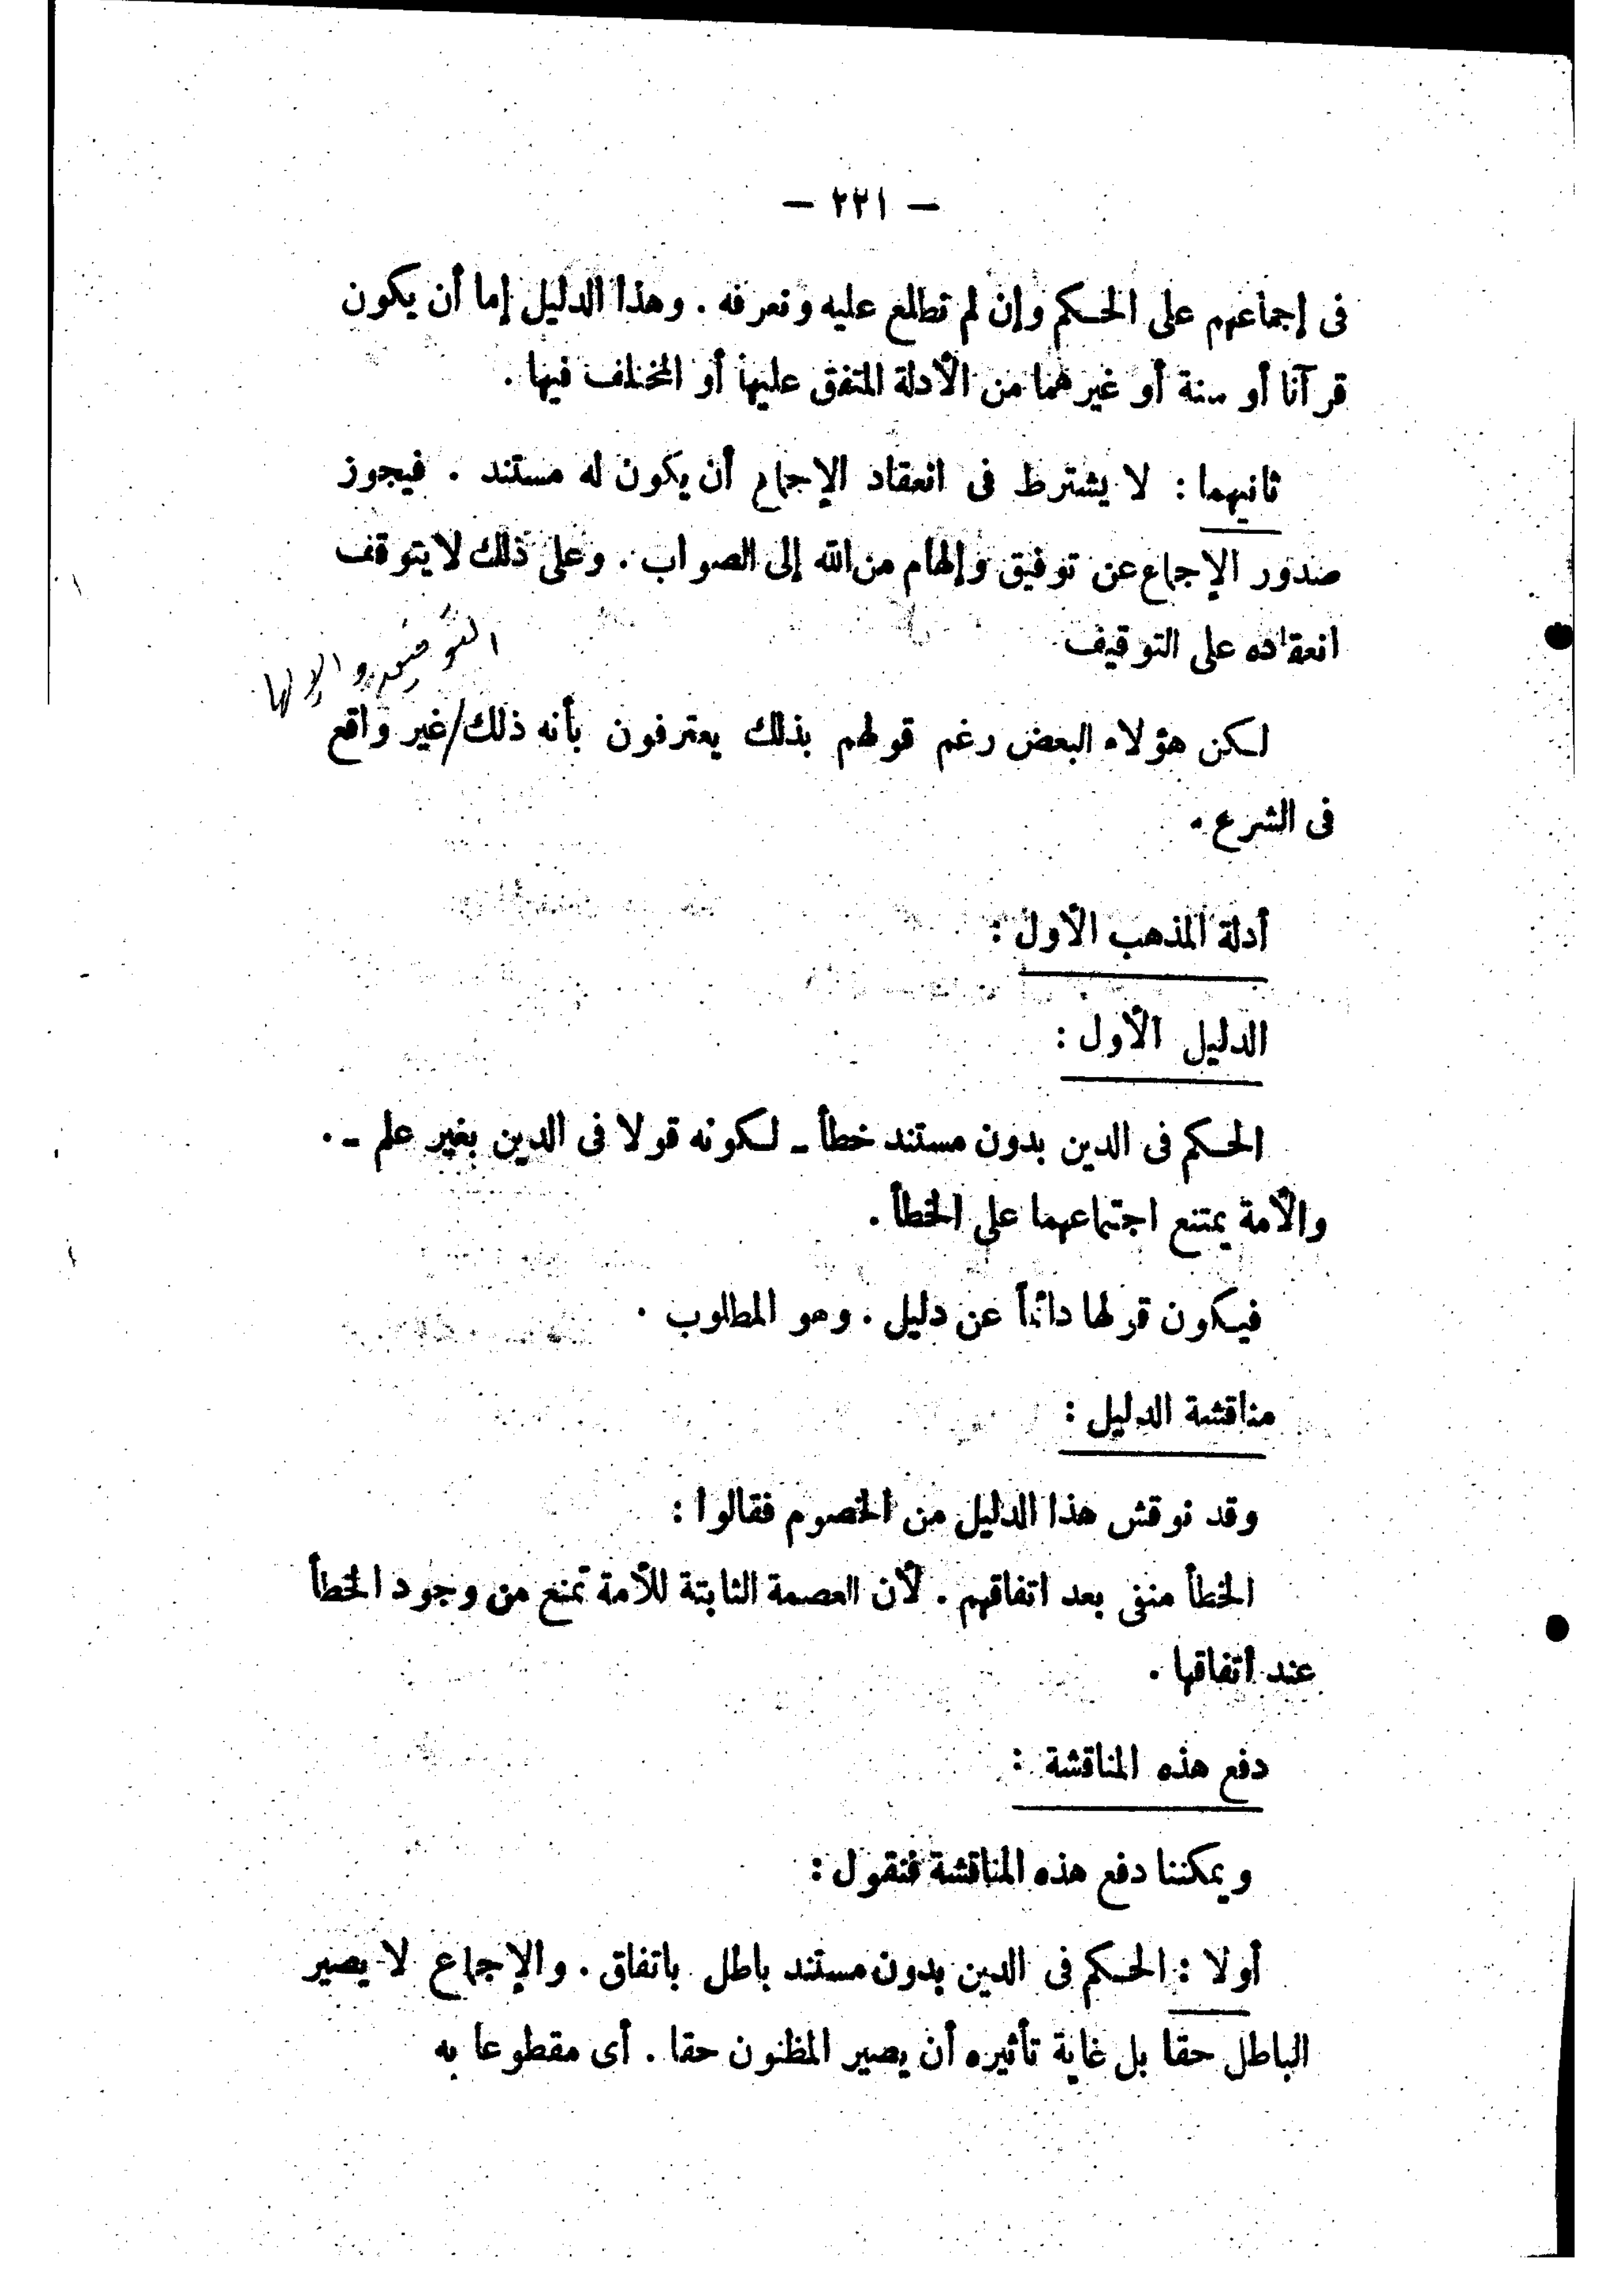 — ٢٢١ —
فى إجماعهم على الحكم وإن لم نطلع عليه ونعرفه . وهذا الدليل إما أن يكون
قرآنا أو سنة أو غيرهما من الأدلة المتفق عليها أو المختلف فيها .
ثانيهما : لا يشترط فى انعقاد الإجماع أن يكون له مستند . فيجوز
صدور الإجماع عن توفيق وإلهام من الله إلى الصواب . وعلى ذلك لا يتوقف
انعقاده على التوقيف
التوفيق والإلها
لكن هؤلاء البعض رغم قولهم بذلك يعترفون بأنه ذلك/غير واقع
فى الشرع .
أدلة المذهب الأول :
الدليل الأول :
الحكم فى الدين بدون مستند خطأ ــ لكونه قولا فى الدين بغير علم ــ .
والأمة يمتنع اجتماعهما على الخطأ .
فيكون قولها دائماً عن دليل . وهو المطلوب .
مناقشة الدليل :
وقد نوقش هذا الدليل من الخصوم فقالوا :
الخطأ منفى بعد اتفاقهم . لأن العصمة الثابتة للأمة تمنع من وجود الخطأ
عند اتفاقها .
دفع هذه المناقشة :
ويمكننا دفع هذه المناقشة فنقول :
أولا : الحكم فى الدين بدون مستند باطل باتفاق . والإجماع لا يصير
الباطل حقا بل غاية تأثيره أن يصير المظنون حقا . أى مقطوعا به